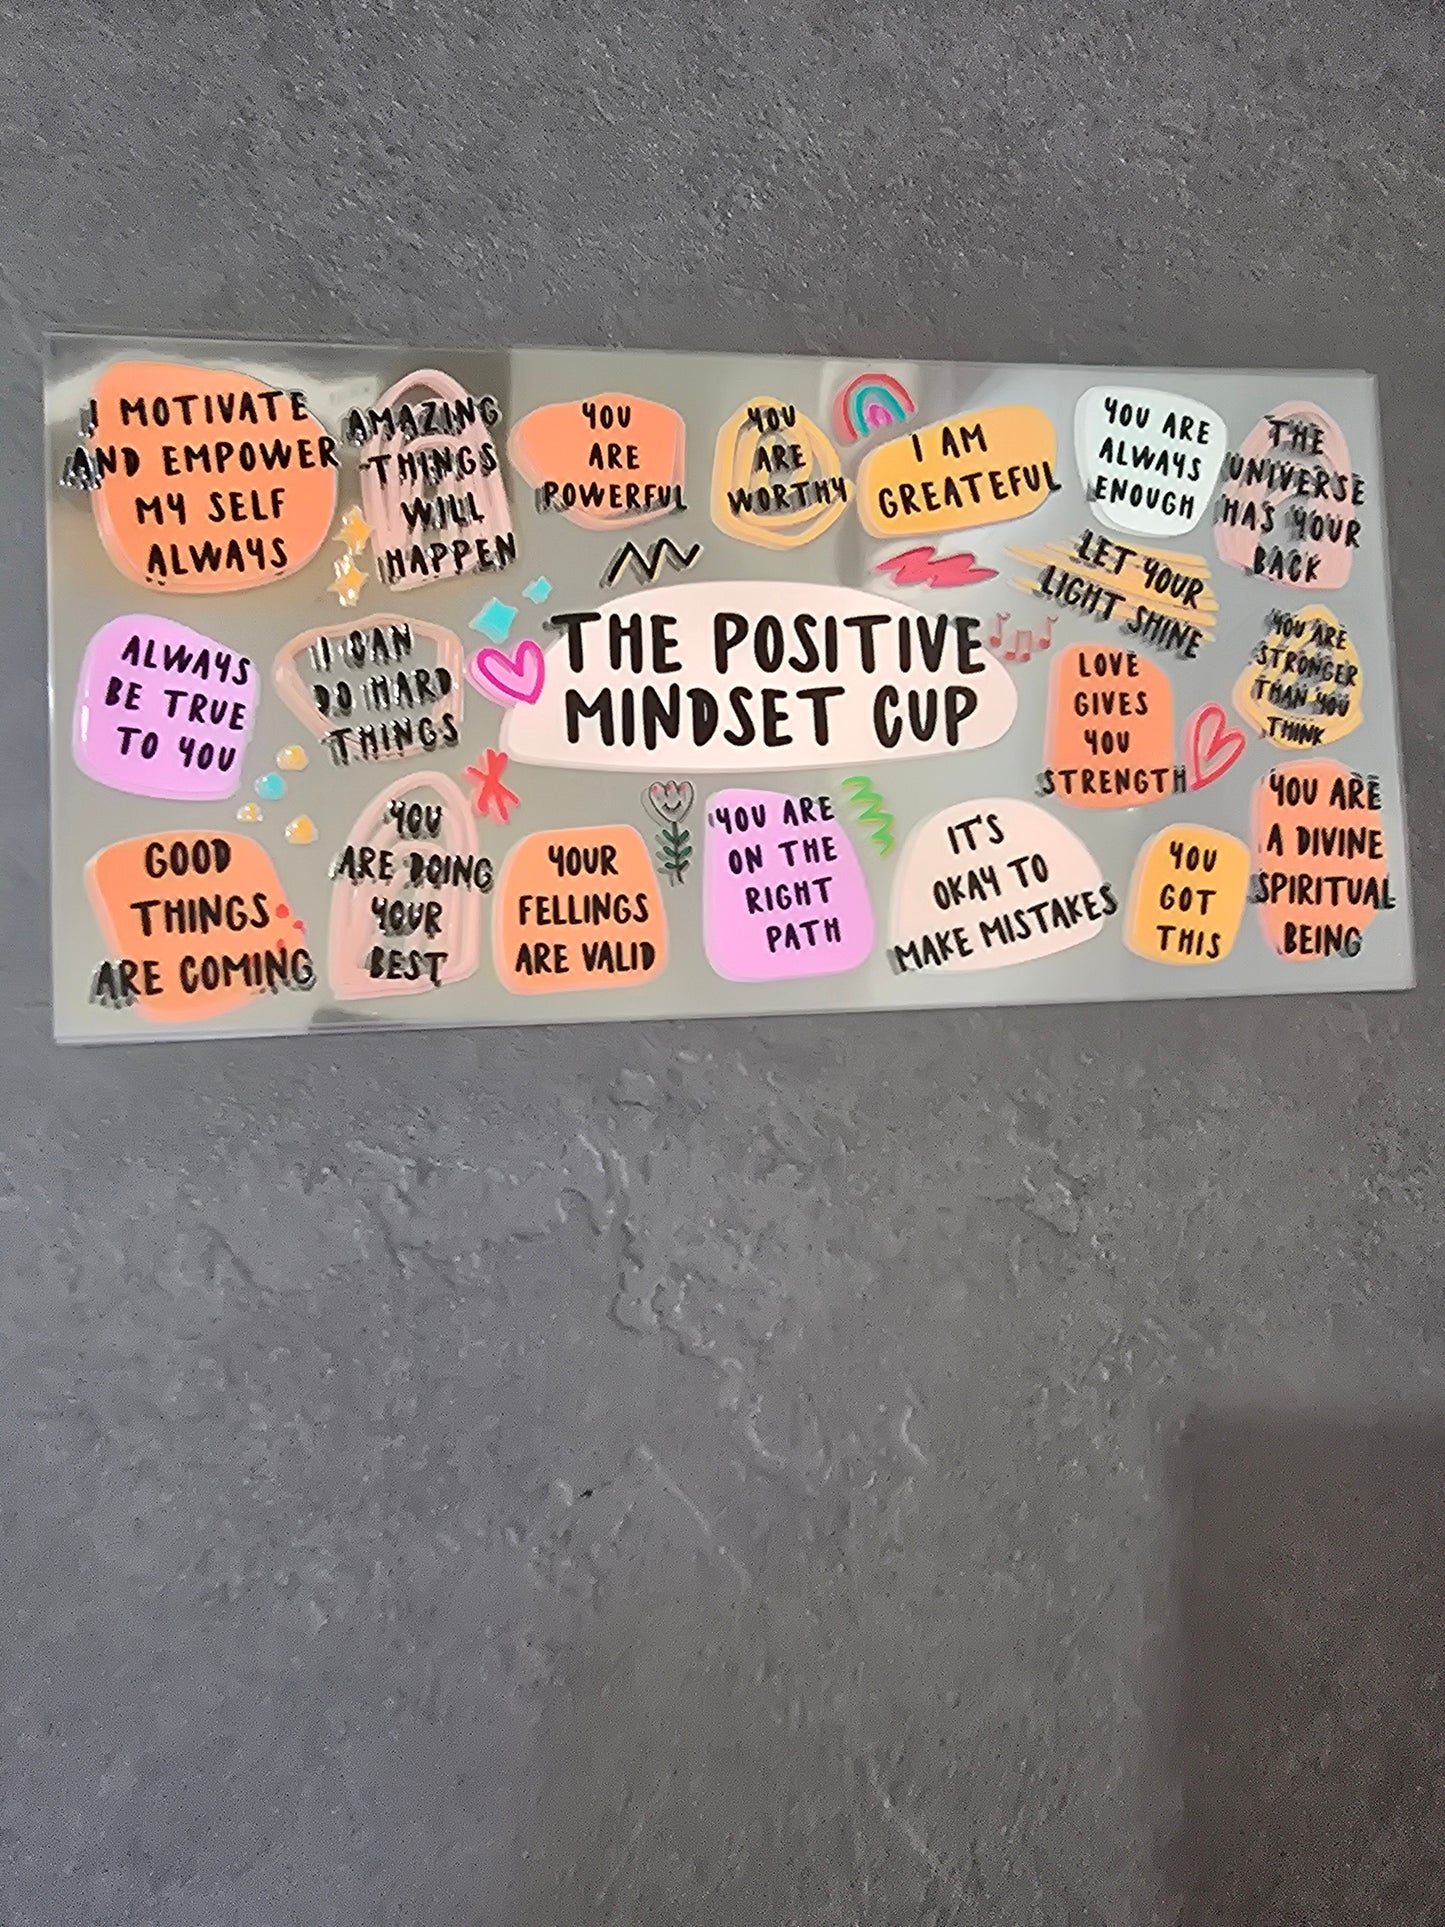 I MOTIVATE
AND EMPOWER
MY SELF
ALWAYS
AMAZING
THINGS
WILL
HAPPEN
YOU
ARE
POWERFUL
YOU
ARE
WORTHY
I AM
GREATEFUL
YOU ARE
ALWAYS
ENOUGH
THE
UNIVERSE
HAS YOUR
BACK
LET YOUR
LIGHT SHINE
ALWAYS
BE TRUE
TO YOU
I CAN
DO HARD
THINGS
THE POSITIVE
MINDSET CUP
LOVE
GIVES
YOU
STRENGTH
YOU ARE
STRONGER
THAN YOU
THINK
GOOD
THINGS
ARE COMING
YOU
ARE DOING
YOUR
BEST
YOUR
FELLINGS
ARE VALID
YOU ARE
ON THE
RIGHT
PATH
IT'S
OKAY TO
MAKE MISTAKES
YOU
GOT
THIS
YOU ARE
A DIVINE
SPIRITUAL
BEING